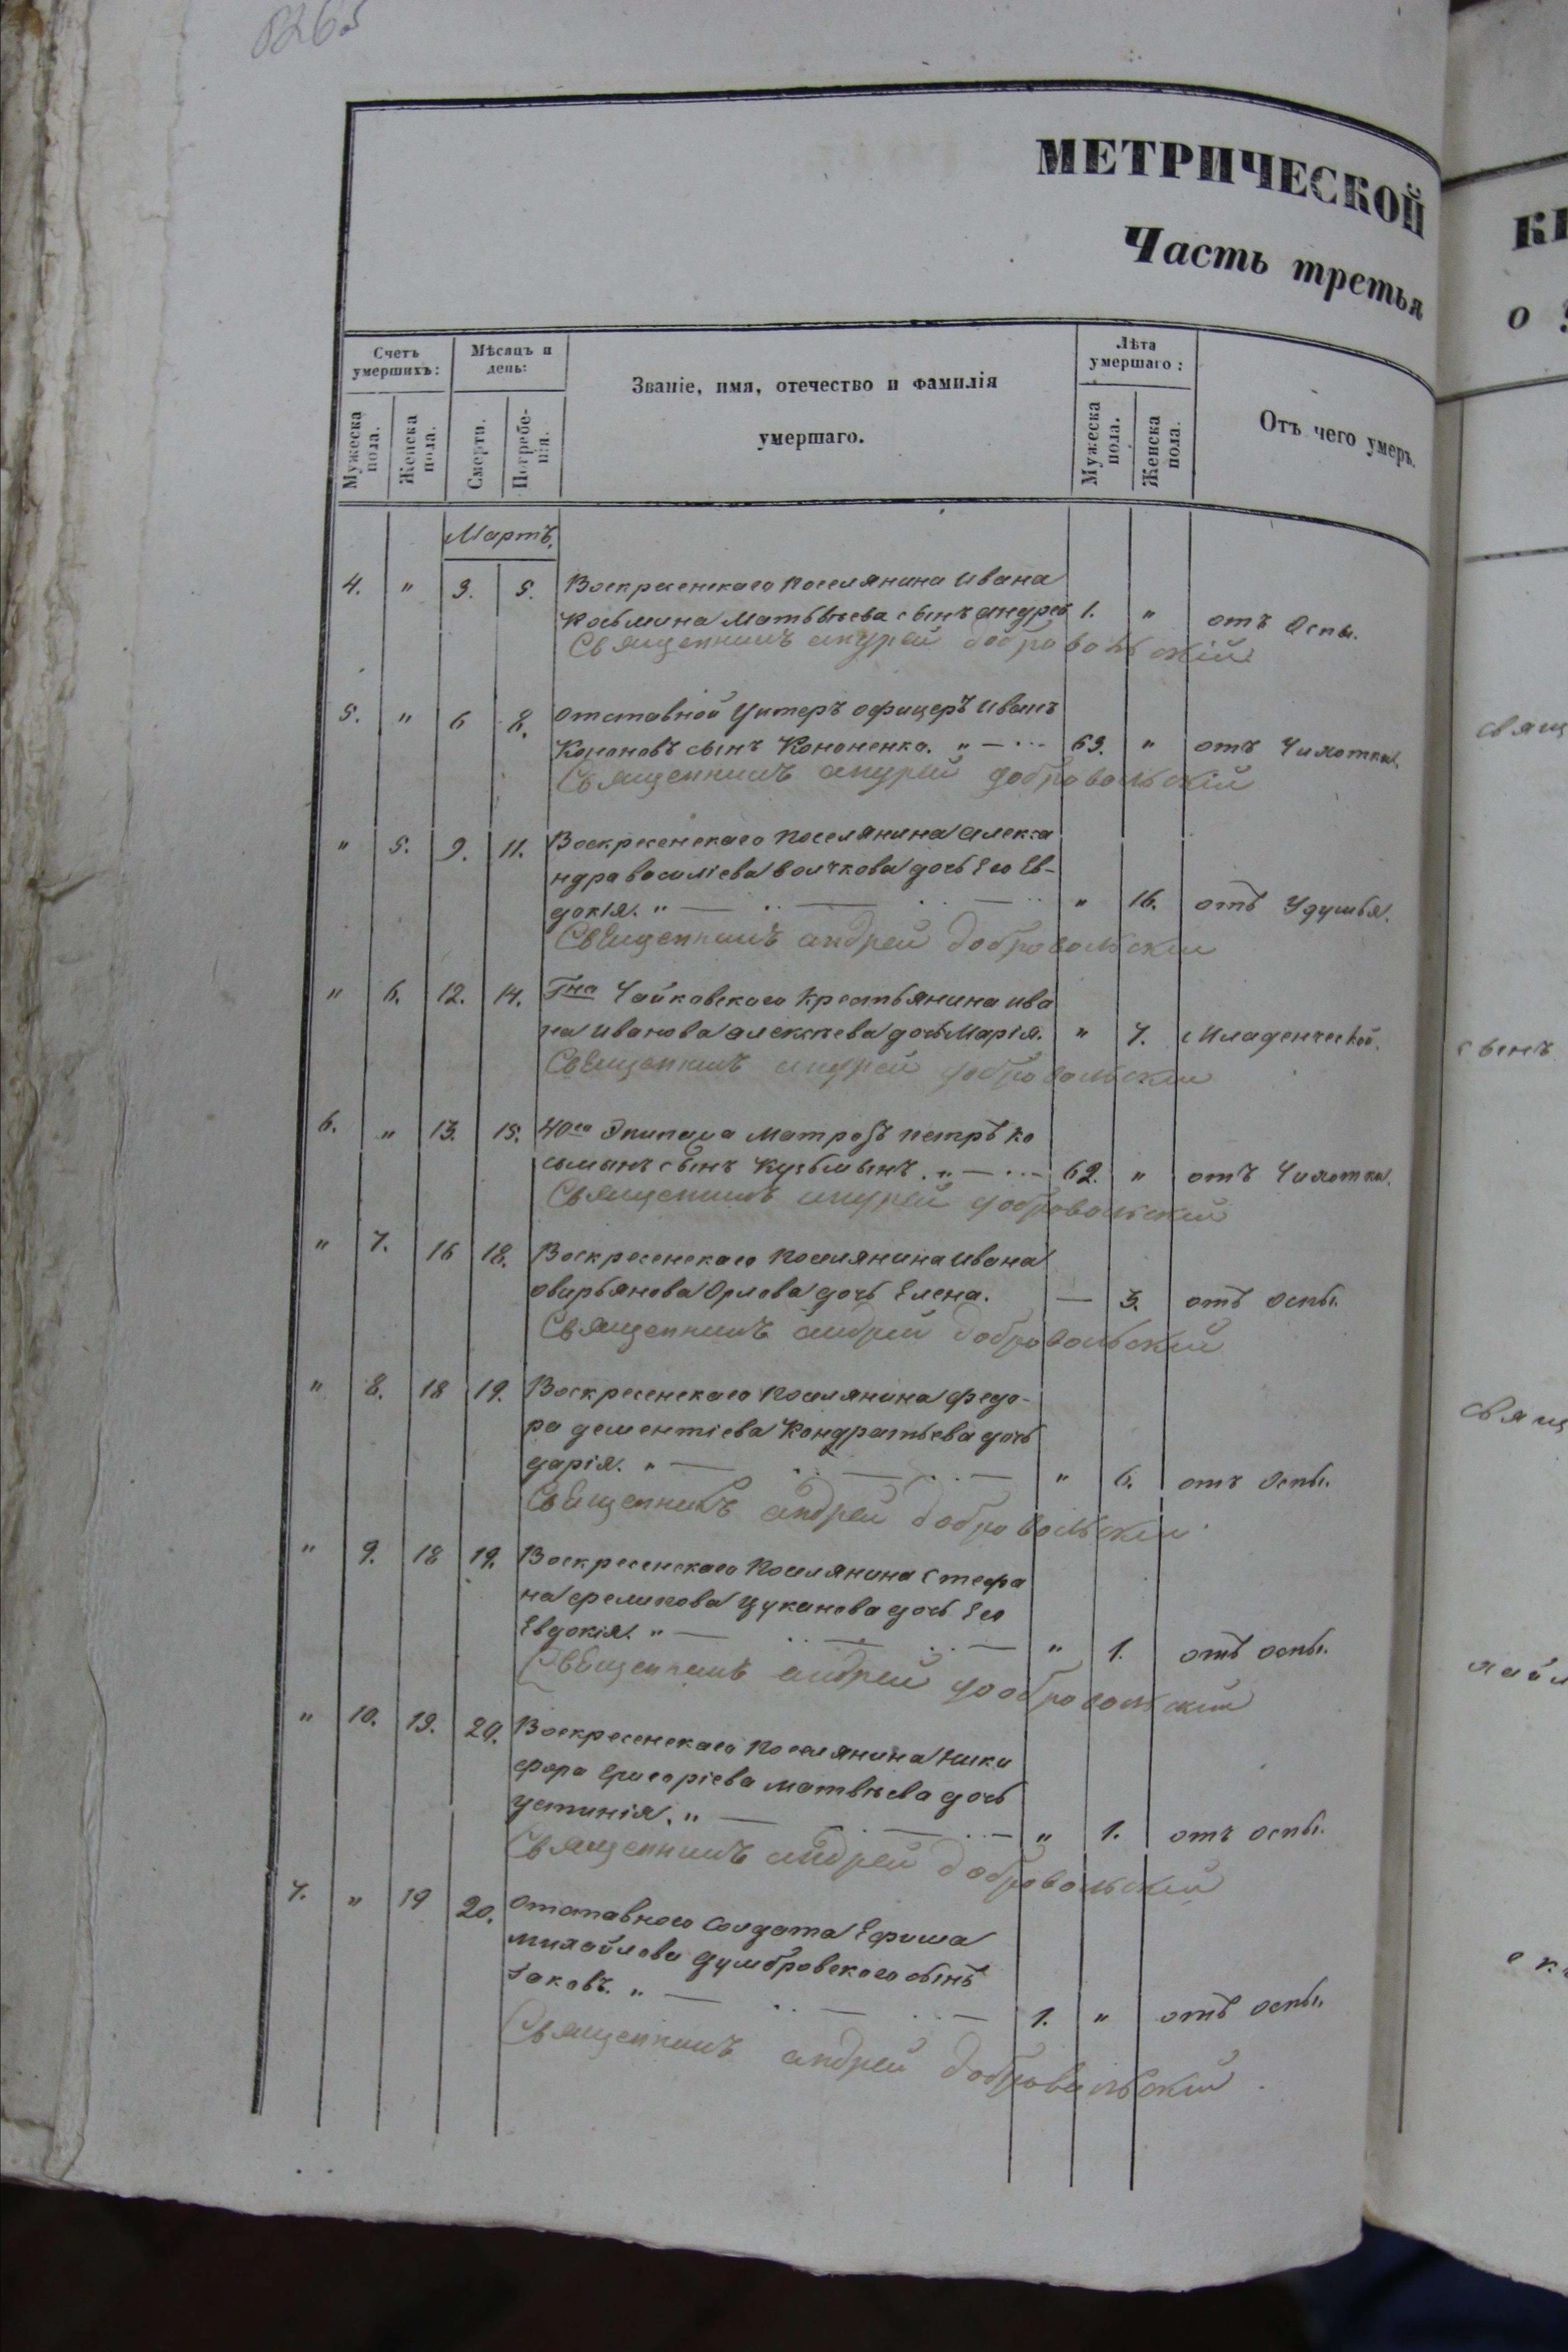 МЕТРИЧЕСКОЙ
Часть третья
Счетъ умершихъ:
Мѣсяцъ и день:
Званіе, имя, отечество и фамилія
умершаго.
Лѣта умершаго:
Отъ чего умеръ.
Мужеска пола.
Женска пола.
Смерти.
Погребенія.
Мужеска пола.
Женска пола.
Мартъ.
4. " 3. 5. Воскресенскаго поселянина Ивана
Косьмина Матвѣева сынъ Андрей 1. " отъ Оспы.
Священникъ андрей добровольскій
5. " 6 8. Отставной Унтеръ офицеръ Иванъ
Кононовъ сынъ Кононенко. " 63. " отъ Чихотки.
Священникъ андрей добровольскій
" 5. 9. 11. Воскресенскаго поселянина Алекса
ндра василіева волчкова дочь Его Ев-
докія. " " 16. отъ Удушья.
Священникъ андрей добровольскій
" 6. 12. 14. Гна Чайковскаго Крестьянина Ива
на Иванова Алексѣева дочь Марія. " 7. Младенческой.
Священникъ андрей добровольскій
6. " 13. 15. 40го Экипажа Матрозъ петръ Ко
сьминъ сынъ Кузьминъ. " 62. " отъ Чихотки.
Священникъ андрей добровольскій
" 7. 16 18. Воскресенскаго поселянина Ивана
Орлова дочь Елена. — 3. отъ оспы.
Священникъ андрей добровольскій
" 8. 18 19. Воскресенскаго поселянина федо-
ра дементіева Кондратьева дочь
дарія. " " 6. отъ Оспы.
Священникъ андрей добровольскій
" 9. 18 19. Воскресенскаго поселянина Стефа
на филипова Цуканова дочь Его
Евдокія. " " 1. отъ оспы.
Священникъ андрей добровольскій
" 10. 19. 20. Воскресенскаго поселянина Ники
фора Григоріева матвѣева дочь
устинія. " " 1. отъ оспы.
Священникъ андрей добровольскій
7. " 19 20. Отставного Солдата Ефима
михайлова думбровскаго сынъ
Іаковъ. " 1. " отъ оспы.
Священникъ андрей добровольскій